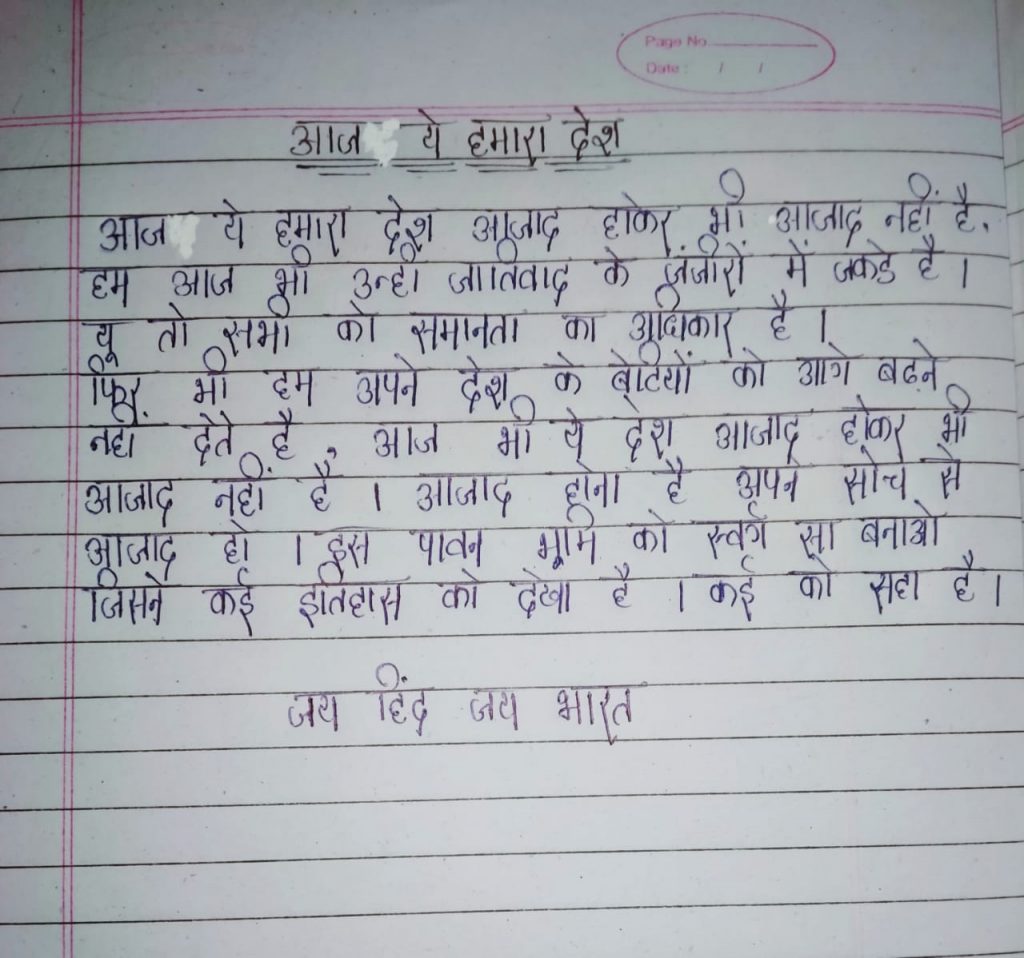 Page No.
Date : / /
आज ये हमारा देश
आज ये हमारा देश आजाद होकर भी आजाद नहीं है.
हम आज भी उन्ही जातिवाद के जंजीरों में जकडे है ।
यू तो सभी को समानता का अधिकार है ।
फिर भी हम अपने देश के बेटियों को आगे बढने
नही देते है, आज भी ये देश आजाद होकर भी
आजाद नहीं है । आजाद होना है अपने सोच से
आजाद हो । इस पावन भूमि को स्वर्ग सा बनाओ
जिसने कई इतिहास को देखा है । कई को सहा है ।
जय हिंद जय भारत